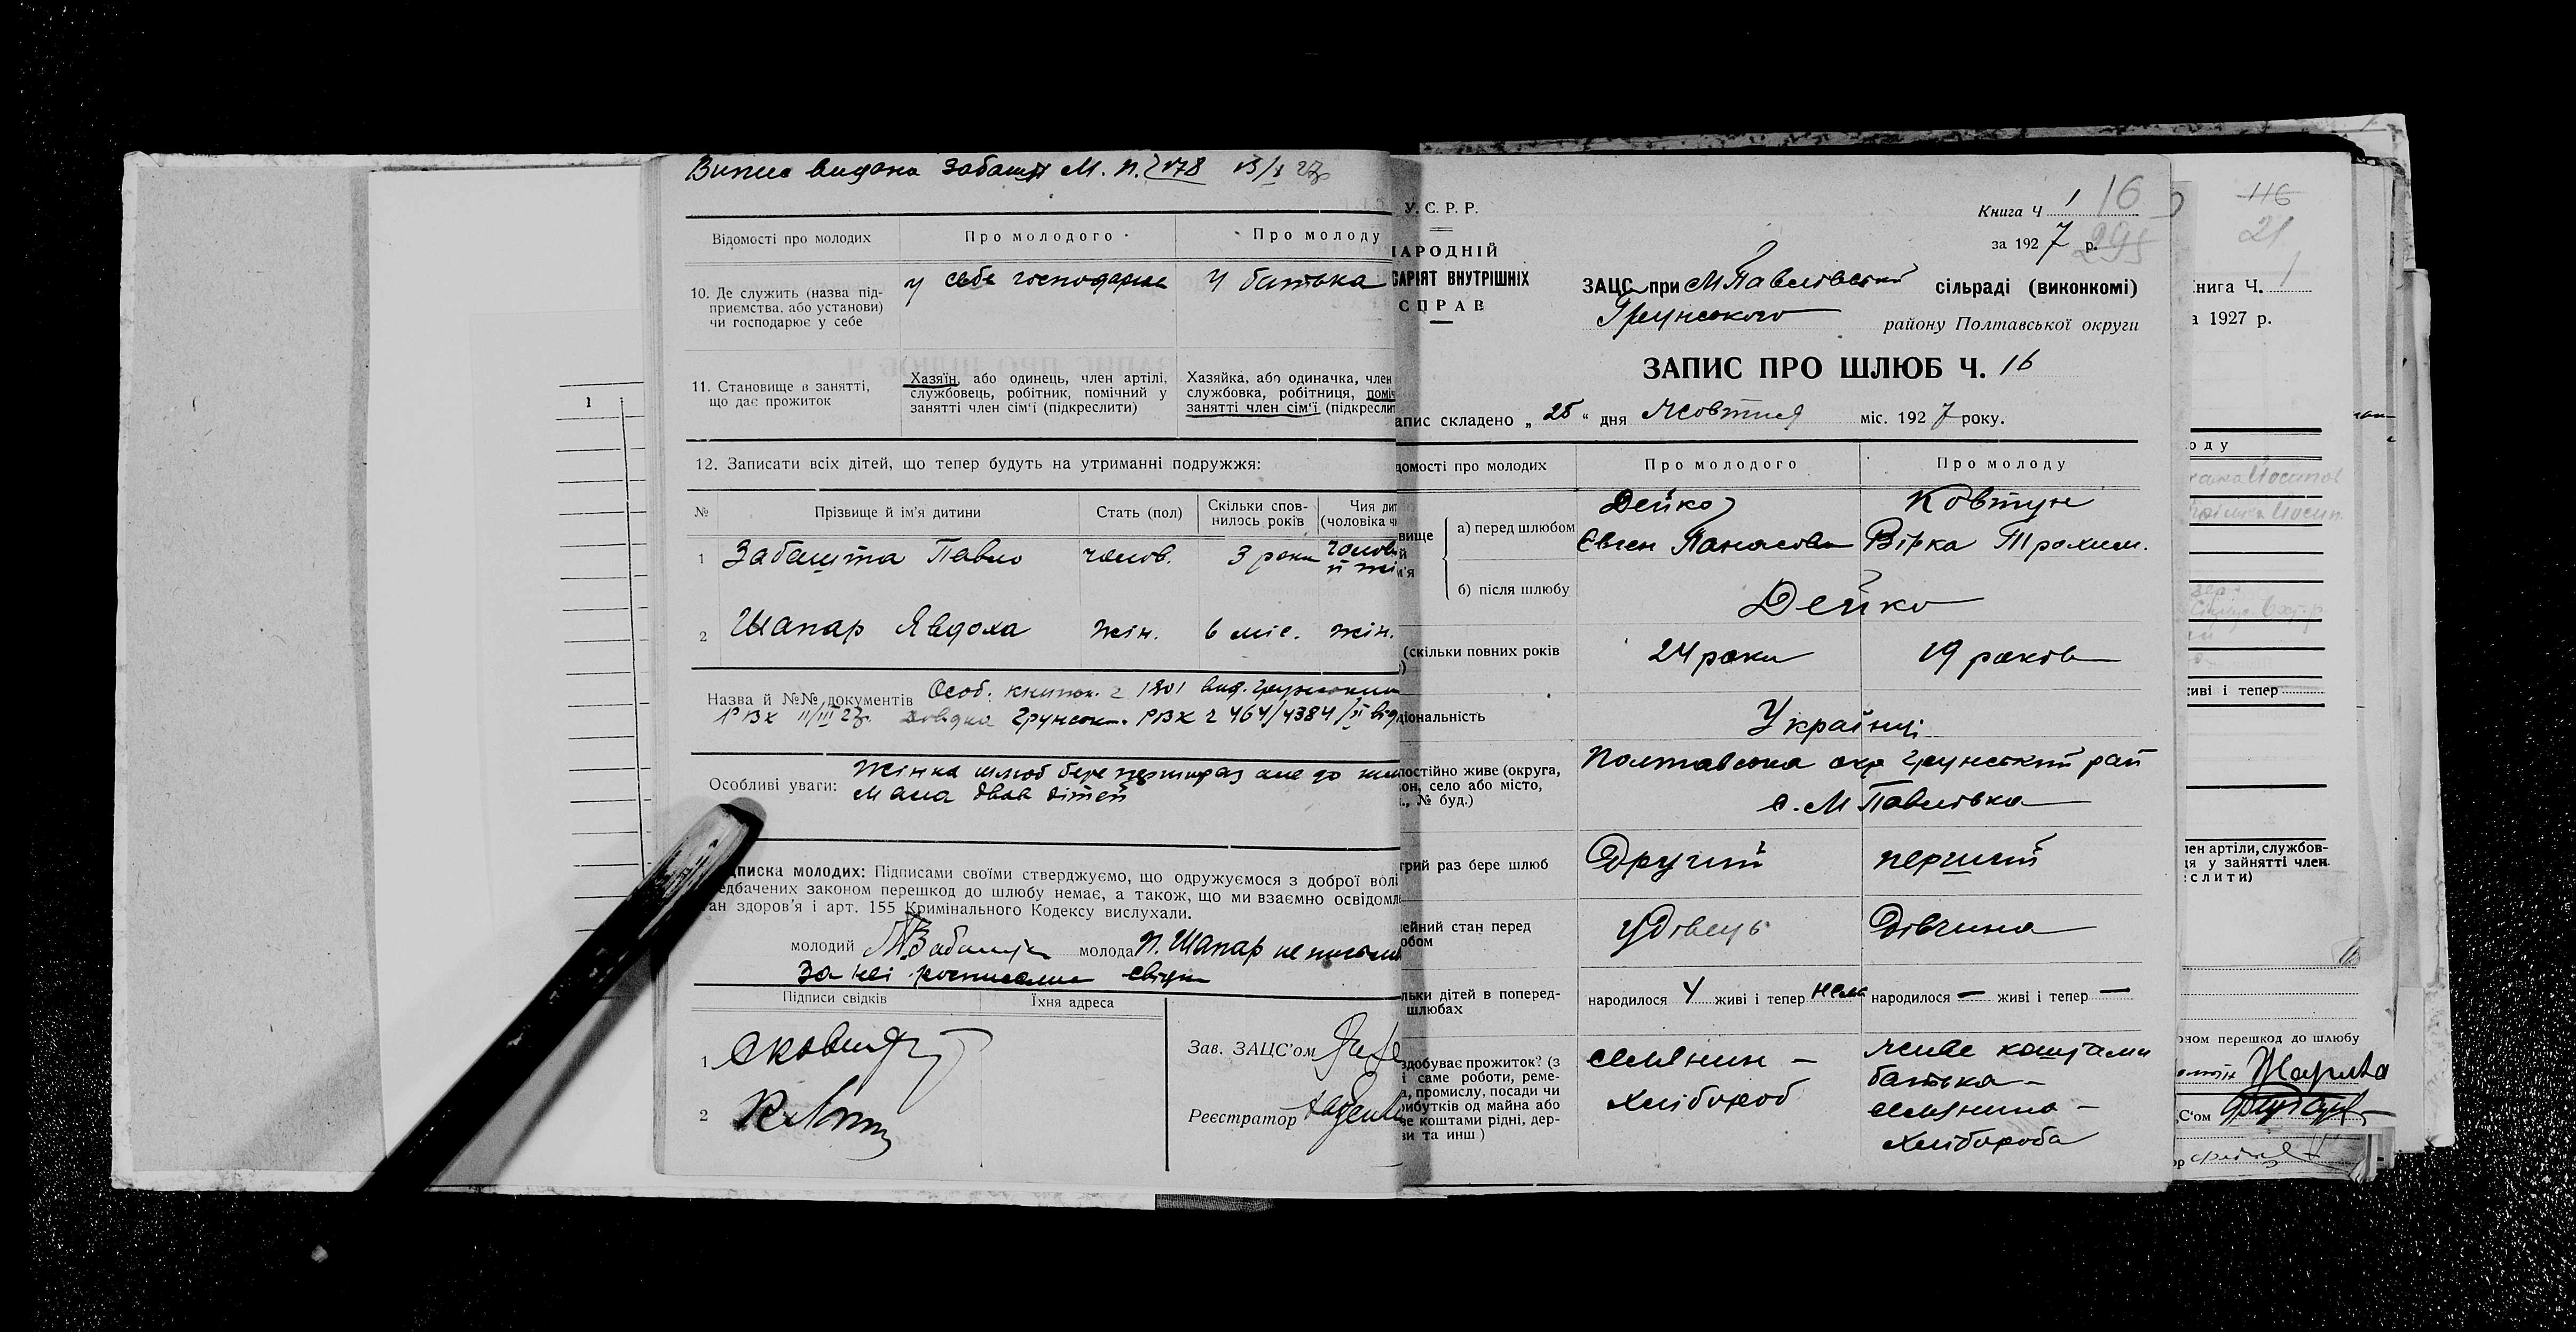 Випис видана Забашт М. П. 2178 13/X 27р
Відомості про молодих
Про молодого
Про молоду
10. Де служить (назва під-
приємства, або установи)
чи господарює у себе
у себе господарює
У батька
11. Становище в занятті,
що дає прожиток
Хазяїн, або одинець, член артілі,
службовець, робітник, помічний у
занятті член сім'ї (підкреслити)
Хазяйка, або одиначка, член
службовка, робітниця, поміч
занятті член сім'ї (підкреслит
12. Записати всіх дітей, що тепер будуть на утриманні подружжя:
№
Прізвище й ім'я дитини
Стать (пол)
Скільки спов-
нилось років
Чия дит
(чоловіка чи
1 Забашта Павло чолов. 3 роки Чолов
й жі
2 Шапар Явдоха жін. 6 міс. жін.
Назва й №№ документів Особ. книжк. 2 1801 вид. Грунським
РВК 11/III 27р. довідка Грунськ. РВК 2 464/4384/II від
Особливі уваги: Жінка шлюб бере перший раз але до
Мала двоє дітей
дписка молодих: Підписами своїми стверджуємо, що одружуємося з доброї волі
едбачених законом перешкод до шлюбу немає, а також, що ми взаємно освідомл
ан здоров'я і арт. 155 Кримінального Кодексу вислухали.
молодий М. Забашта молода П. Шапар не письм
За неї росписались свідки
Підписи свідків
Їхня адреса
1
2
Зав. ЗАЦС'ом
Реєстратор
У. С. Р. Р.
НАРОДНІЙ
САРІЯТ ВНУТРІШНІХ
СПРАВ
Книга Ч 1 16
за 1927 р. 295
ЗАЦС при М Павлівській сільраді (виконкомі)
Грунського району Полтавської округи
ЗАПИС ПРО ШЛЮБ Ч. 16
апис складено „ 25 “ дня Жовтня міс. 1927 року.
домості про молодих
Про молодого
Про молоду
вище
й
м'я
а) перед шлюбом
Дейко
Євген Панасови
Ковтун
Вірка Трохим.
б) після шлюбу
Дейко
(скільки повних років
24 роки
19 років
ціональність
Українці
постійно живе (округа,
он, село або місто,
., № буд.)
Полтавська окр Грунський рай
с. М Павлівка
трий раз бере шлюб
Другий
перший
ейний стан перед
юбом
удівець
Дівчина
льки дітей в поперед-
шлюбах
народилося 4 живі і тепер нема
народилося — живі і тепер —
здобуває прожиток? (з
і саме роботи, реме-
а, промислу, посади чи
ибутків од майна або
ве коштами рідні, дер-
ви та инш)
селянин —
хлібороб
живе коштами
батька —
селянина —
хлібороба
116
21
нига Ч. 1
а 1927 р.
оду
иві і тепер
лен артіли, службов-
ця у зайнятті член
слити)
оном перешкод до шлюбу
С'ом
ор
1